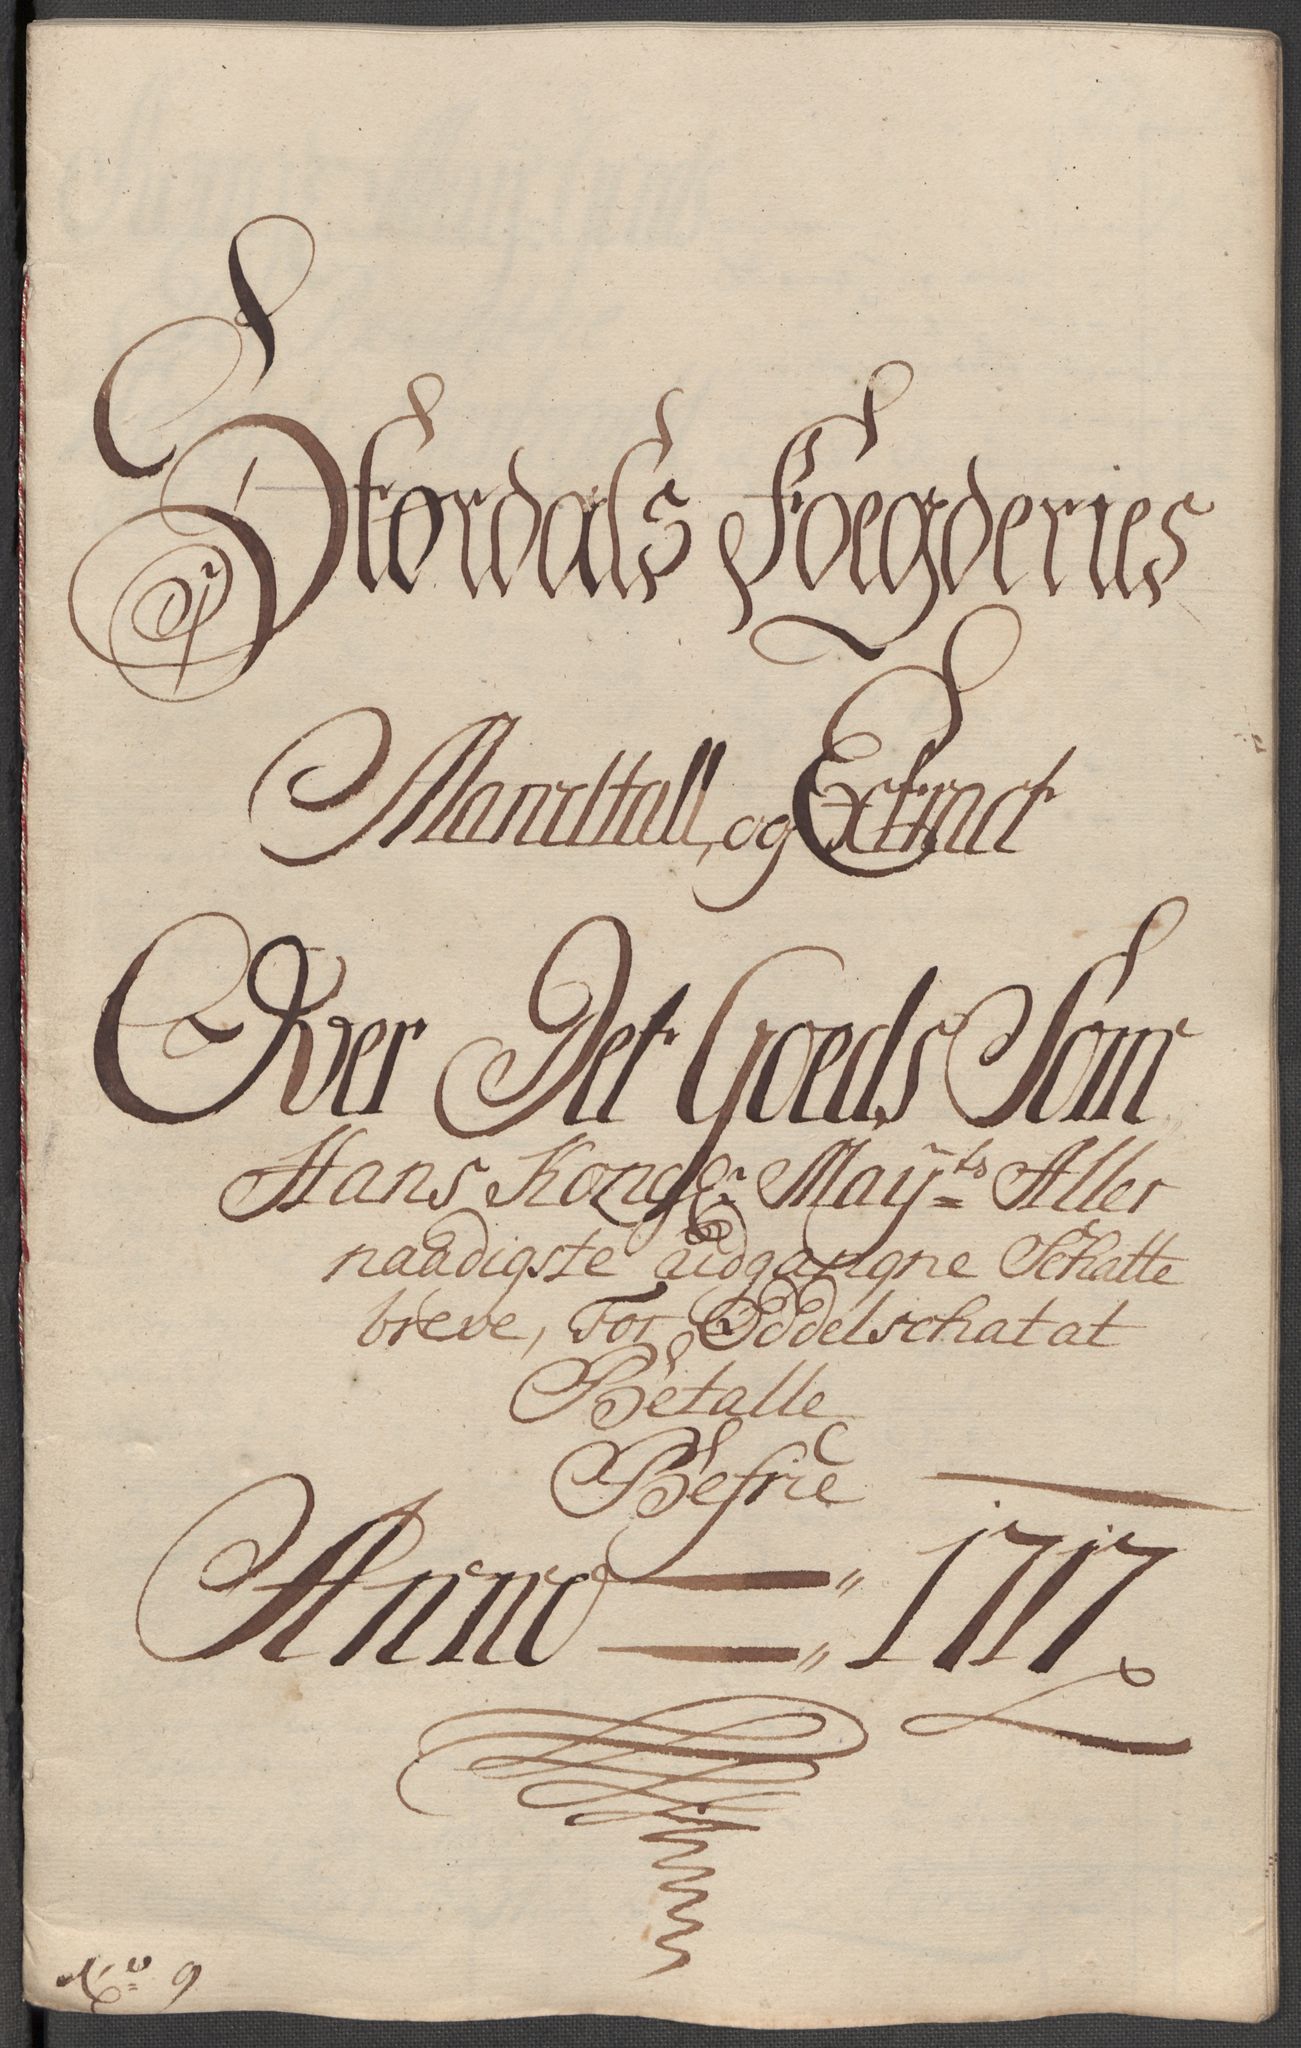 Stordals Foegderies
Mandtall, og Extract
Over Det Goeds Som
Hans Kongl: Maÿts Aller
naadigste udgangne Schatte
breve, For Oddelschat at
Betalle
Befrie
Anno 1717
No 9